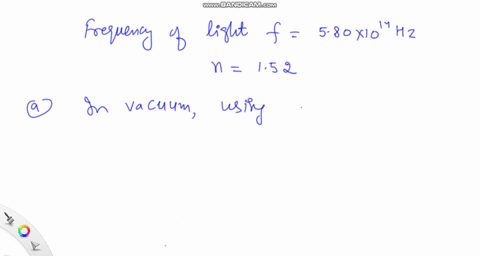 www.BANDICAM.com
Frequency of light f = 5.80×10¹⁴ Hz
n = 1.52
(a) In vacuum, using